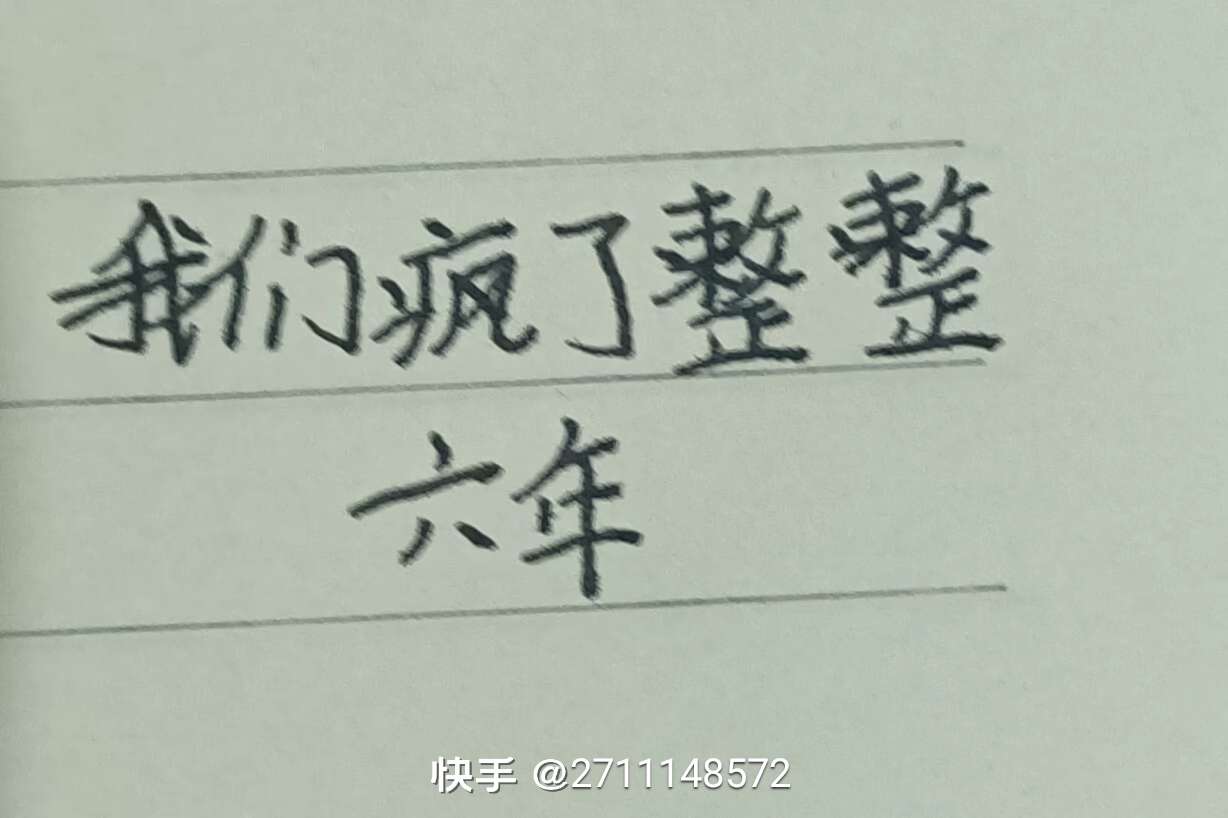 我们疯了整整
六年
快手 @2711148572